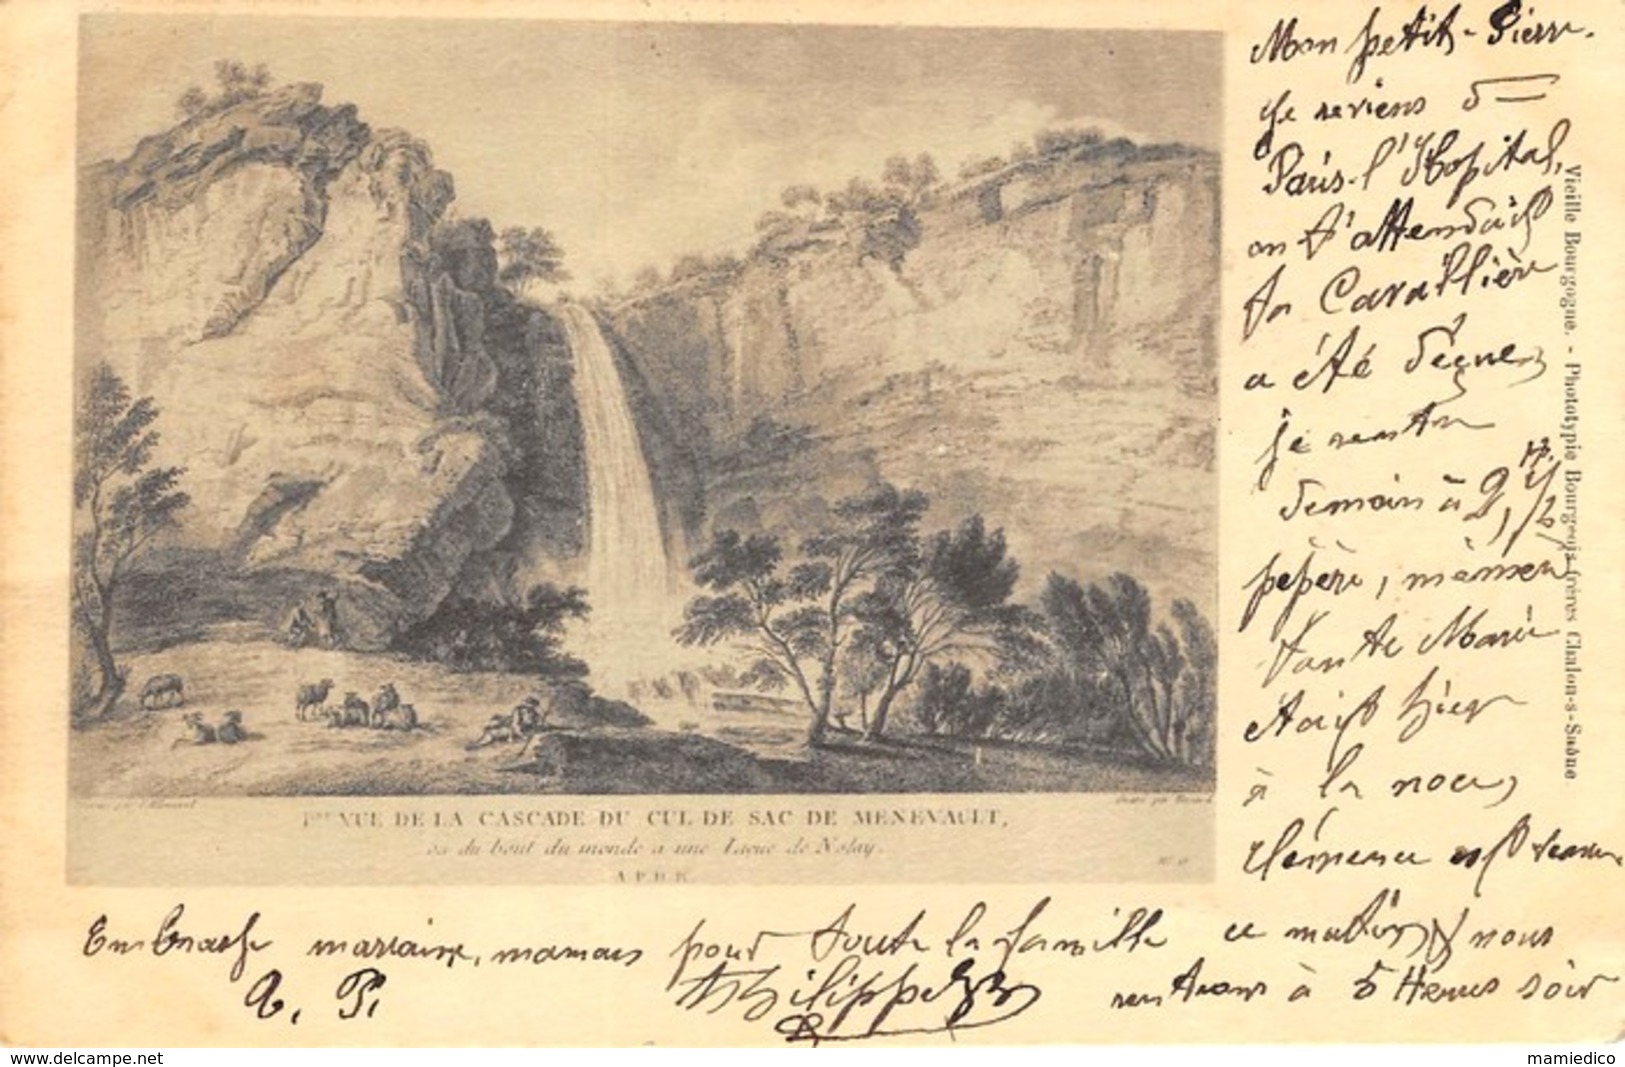 Mon petit-Pierre.
Je reviens de
Paris-l'Hopital,
on t'attendait
ta Cavallière
a été déçue,
je rentre
demain à 9, H. 1/2
pépère, mémère
Tante Marie
était hier
à la noce,
Clémence est venue
ce matin & nous
rentrons à 5 Heures soir
Embrasse marraine, maman pour toute la famille
a. P.
Philippe
Vieille Bourgogne. - Phototypie Bourgeois frères Chalon-s-Saône
VUE DE LA CASCADE DU CUL DE SAC DE MENEVAULT,
ou du bout du monde a une Lieue de Nolay.
A.P.D.R.
www.delcampe.net
mamiedico